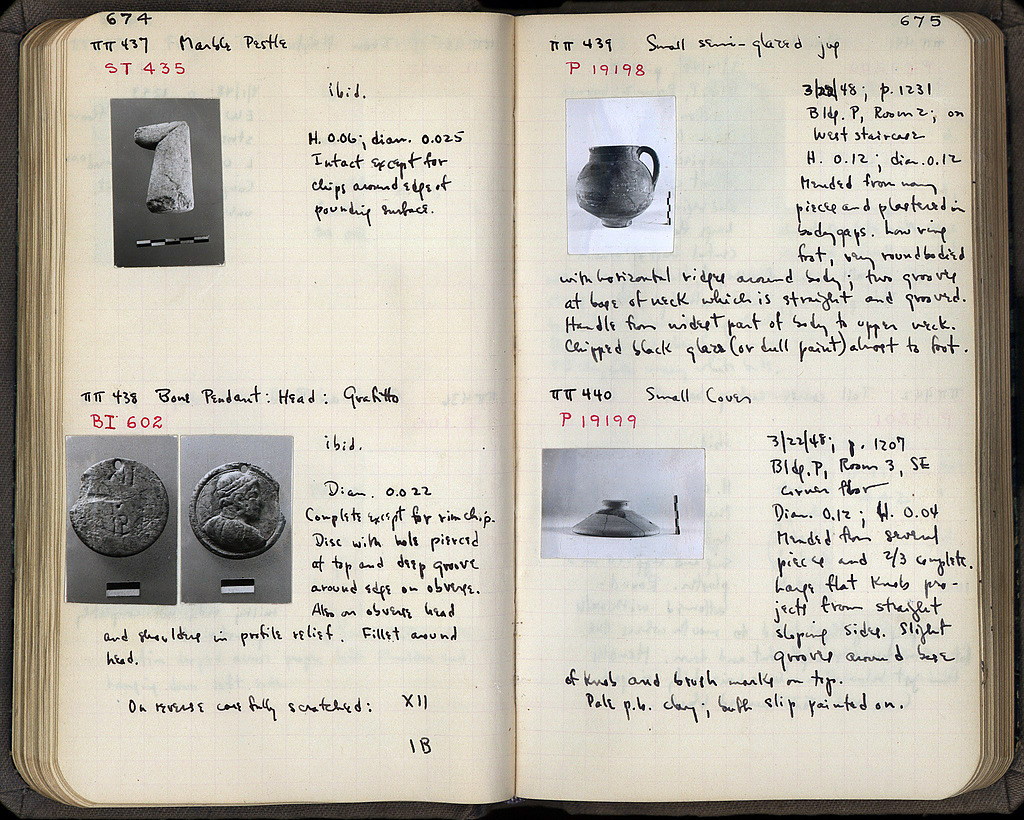 674
ΠΠ 437 Marble Pestle
ST 435
ibid.
H. 0.06; diam. 0.025
Intact except for
chips around edge of
pounding surface.
ΠΠ 438 Bone Pendant: Head: Grafitto
BI 602
ibid.
Diam. 0.022
Complete except for rim chip.
Disc with hole pierced
at top and deep groove
around edge on obverse.
Also on obverse head
and shoulders in profile relief. Fillet around
head.
On reverse carefully scratched: XII
IB
675
ΠΠ 439 Small semi-glazed jug
P 19198
3/22/48; p. 1231
Bldg. P, Room 2; on
West staircase
H. 0.12; dia. 0.12
Mended from many
pieces and plastered in
body gaps. Low ring
foot, very round bodied
with horizontal ridges around body; two grooves
at base of neck which is straight and grooved.
Handle from widest part of body to upper neck.
Chipped black glaze (or dull paint) almost to foot.
ΠΠ 440 Small Cover
P 19199
3/22/48; p. 1207
Bldg. P, Room 3, SE
corner floor
Diam. 0.12; H. 0.04
Mended from several
pieces and 2/3 complete.
Large flat knob pro-
jects from straight
sloping sides. Slight
groove around base
of knob and brush marks on top.
Pale p.b. clay; buff slip painted on.